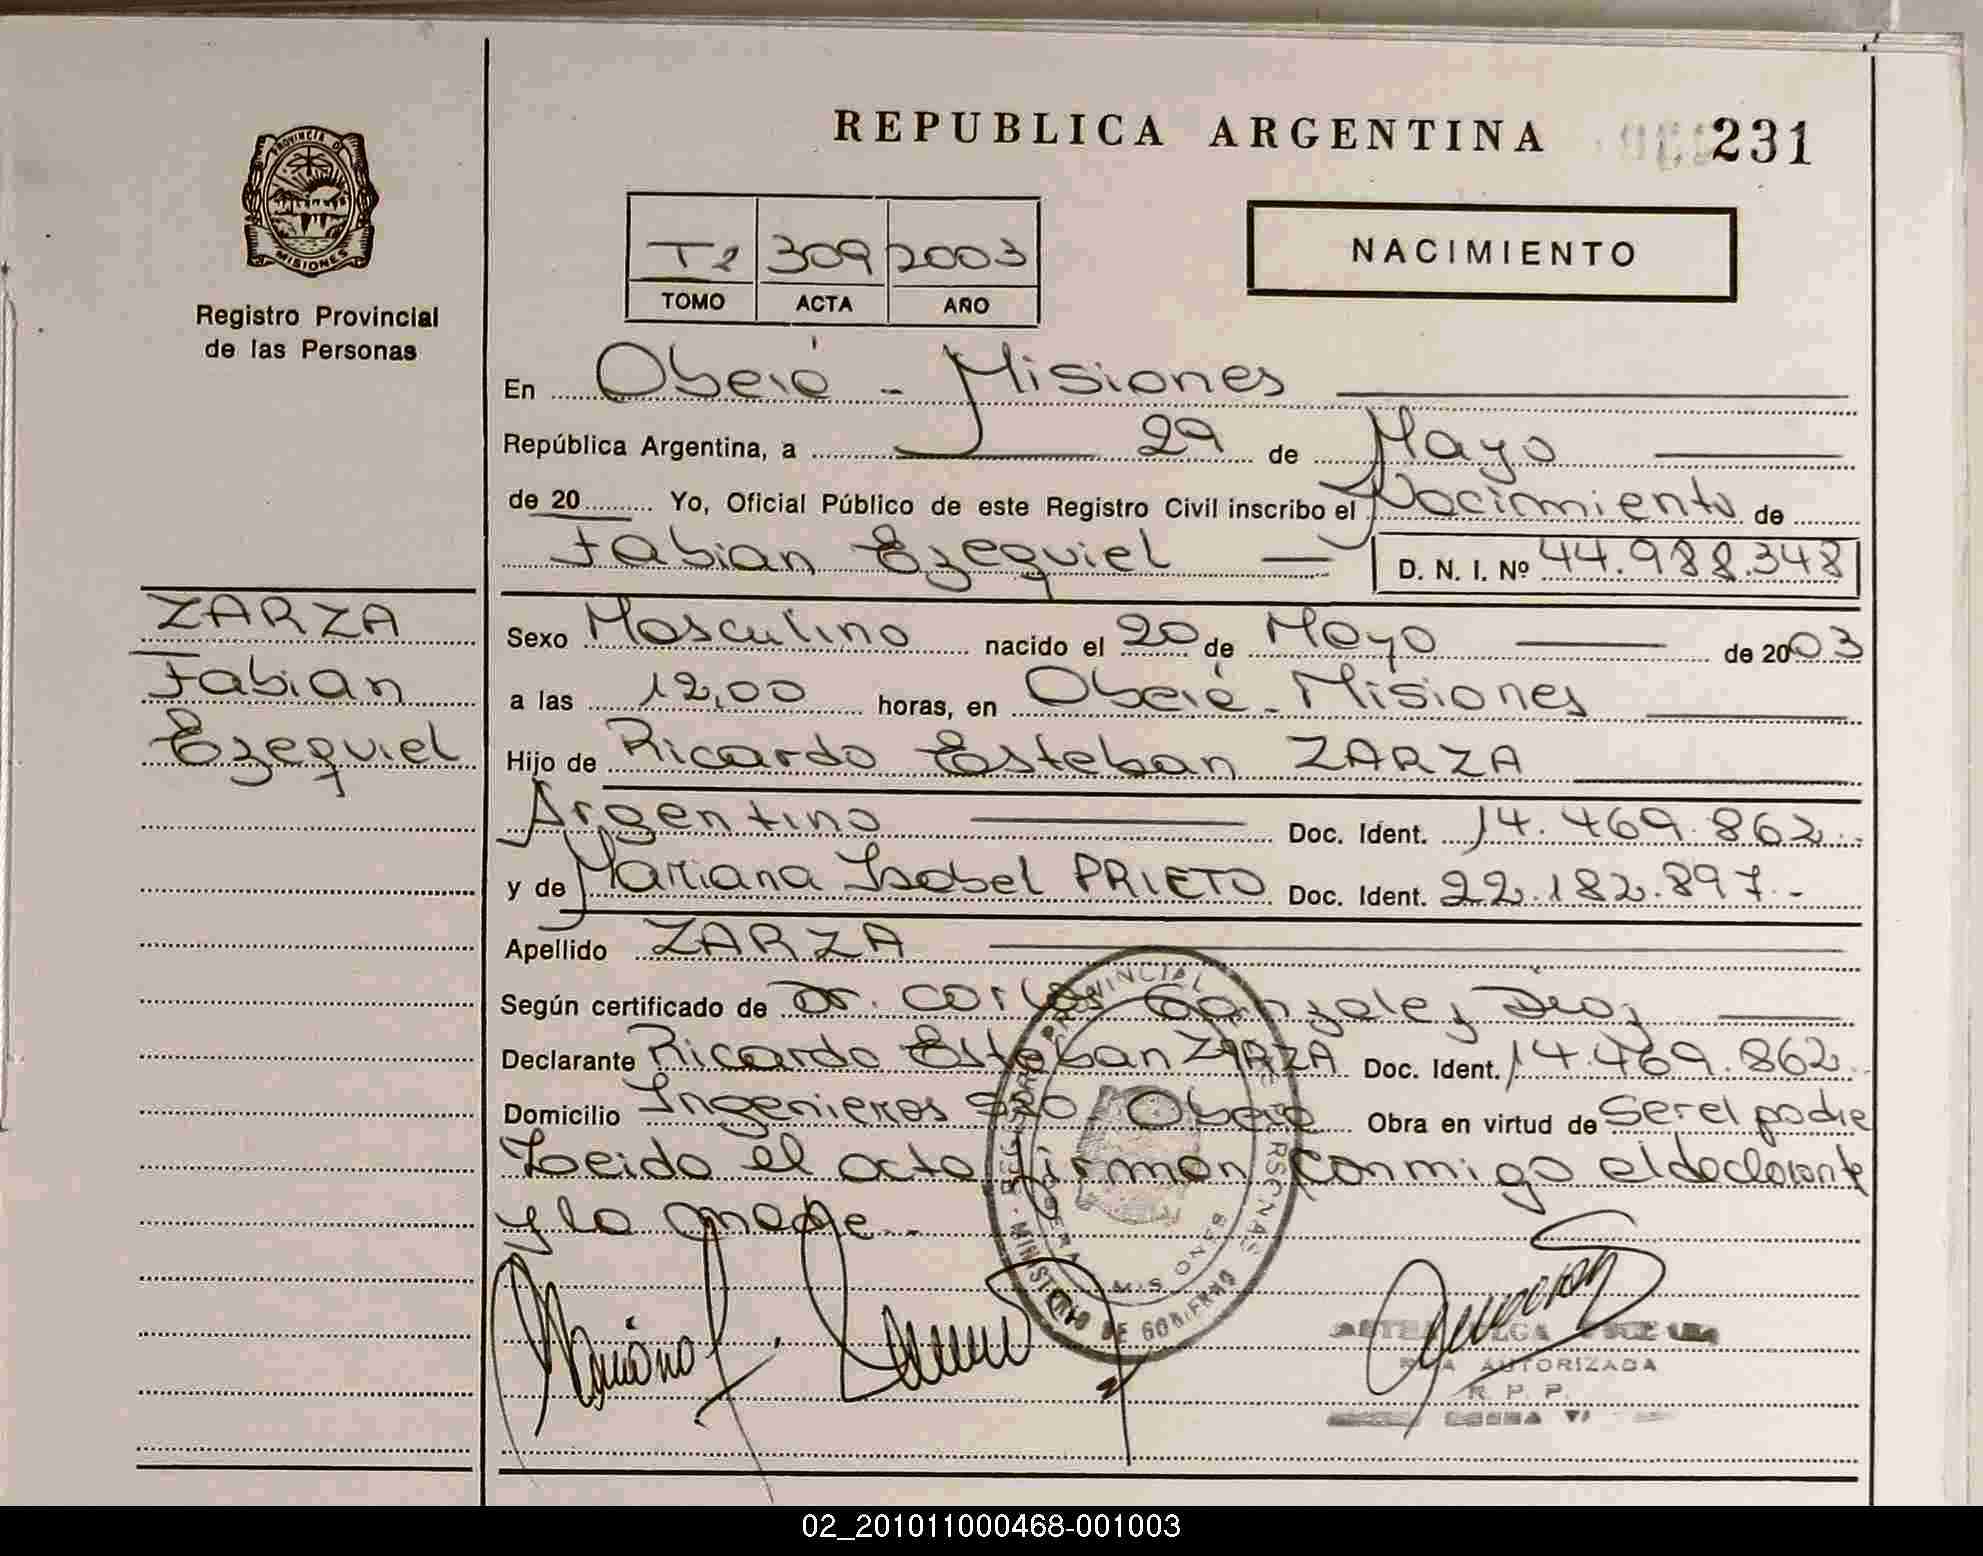 REPUBLICA ARGENTINA 231
PROVINCIA DE
MISIONES
Registro Provincial
de las Personas
T2 309 2003
TOMO ACTA AÑO
NACIMIENTO
En Oberá - Misiones
República Argentina, a 29 de Mayo
de 20 Yo, Oficial Público de este Registro Civil inscribo el Nacimiento de
Fabian Ezequiel D. N. I. Nº 44.988.348
ZARZA
Fabian
Ezequiel
Sexo Masculino nacido el 20 de Mayo de 2003
a las 12,00 horas, en Oberá - Misiones
Hijo de Ricardo Esteban ZARZA
Argentino Doc. Ident. 14.469.862
y de Mariana Isabel PRIETO Doc. Ident. 22.182.897.-
Apellido ZARZA
Según certificado de Dr. Carlos Gonzalez
Declarante Ricardo Esteban ZARZA Doc. Ident. 14.469.862
Domicilio Ingenieros Oberá Obra en virtud de Ser el padre
Leido el acta firman conmigo el declarante
y la madre.-
MINISTERIO DE GOBIERNO
AUTORIZADA
R. P. P.
02_201011000468-001003